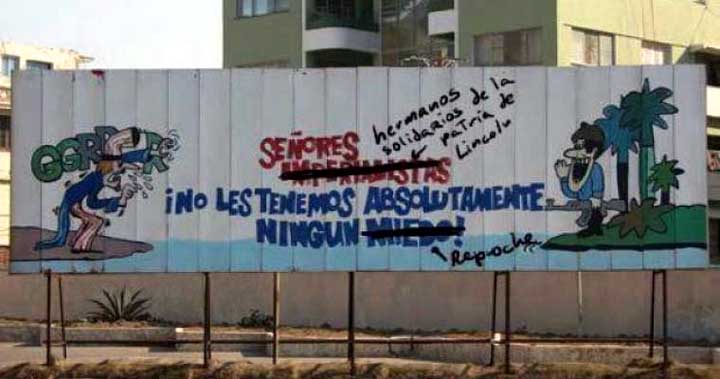 GGRRRR
SEÑORES
hermanos
solidarios de la
patria de
Lincoln
IMPERIALISTAS
¡NO LES TENEMOS ABSOLUTAMENTE
NINGUN MIEDO!
Reproche